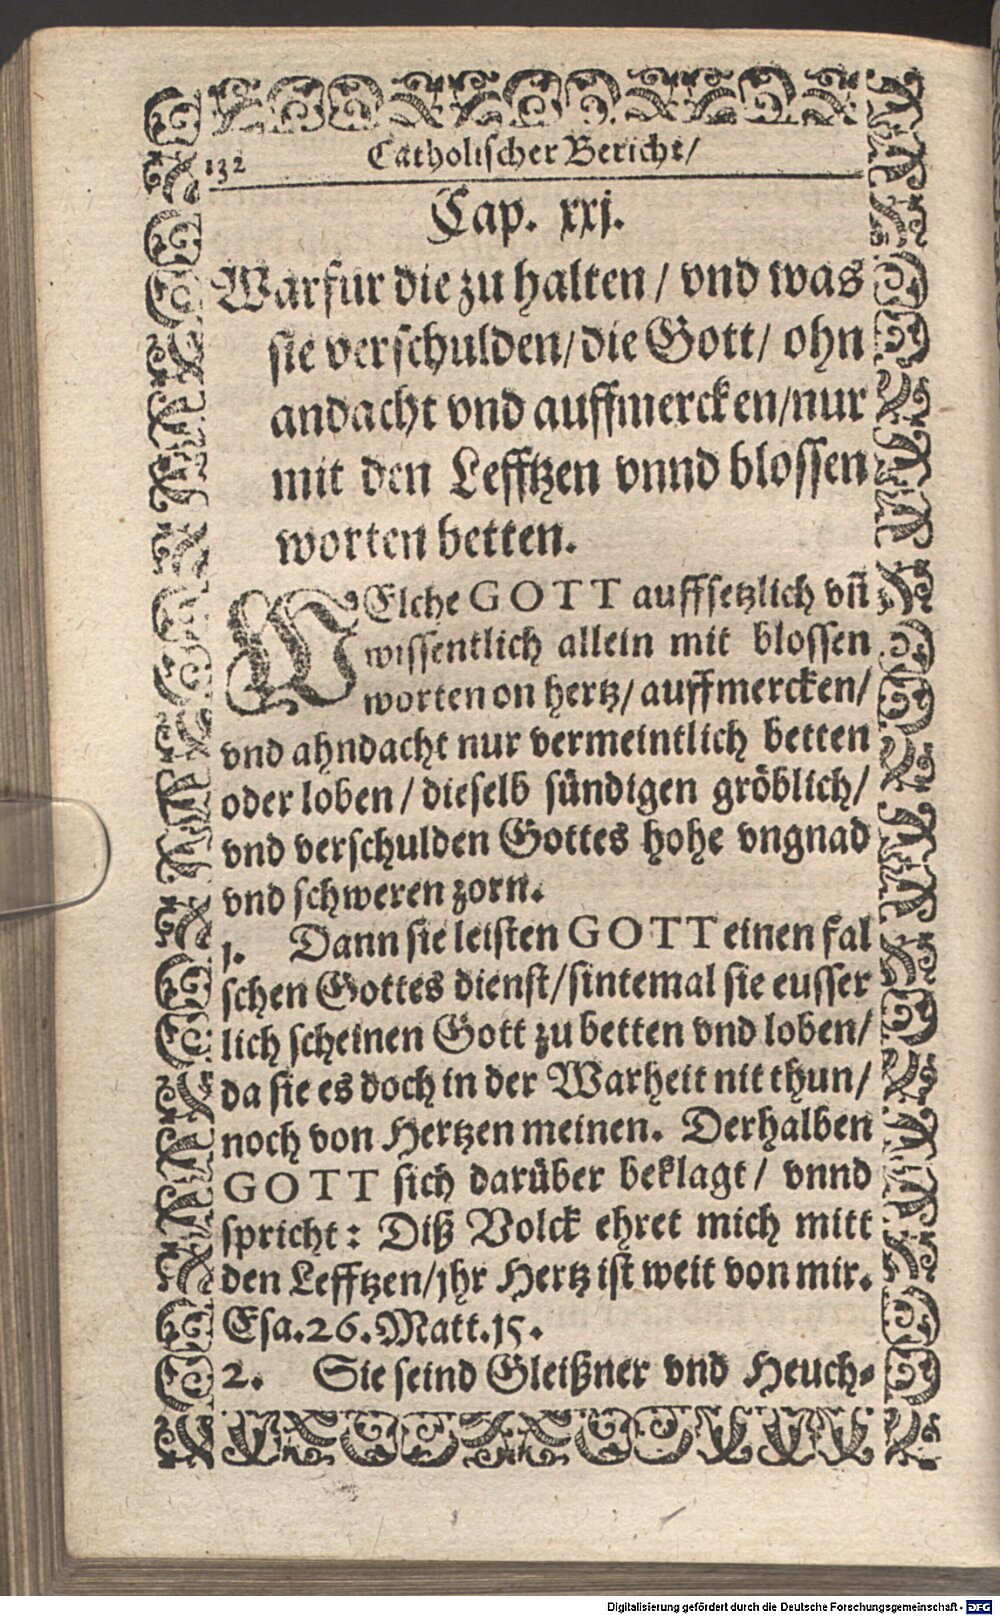 132
Catholischer Bericht/
Cap. xxj.
Warfur die zu halten / vnd was
sie verschulden/die Gott/ ohn
andacht vnd auffmercken/nur
mit den Lefftzen vnnd blossen
worten betten.
WElche GOTT auffsetzlich vñ
wissentlich allein mit blossen
worten on hertz/ auffmercken/
vnd ahndacht nur vermeintlich betten
oder loben / dieselb sündigen gröblich/
vnd verschulden Gottes hohe vngnad
vnd schweren zorn.
j. Dann sie leisten GOTT einen fal
schen Gottes dienst/sintemal sie eusser
lich scheinen Gott zu betten vnd loben/
da sie es doch in der Warheit nit thun/
noch von Hertzen meinen. Derhalben
GOTT sich darüber beklagt/ vnnd
spricht: Diß Volck ehret mich mitt
den Lefftzen/jhr Hertz ist weit von mir.
Esa.26.Matt.15.
2. Sie seind Gleißner vnd Heuch-
Digitalisierung gefördert durch die Deutsche Forschungsgemeinschaft - DFG